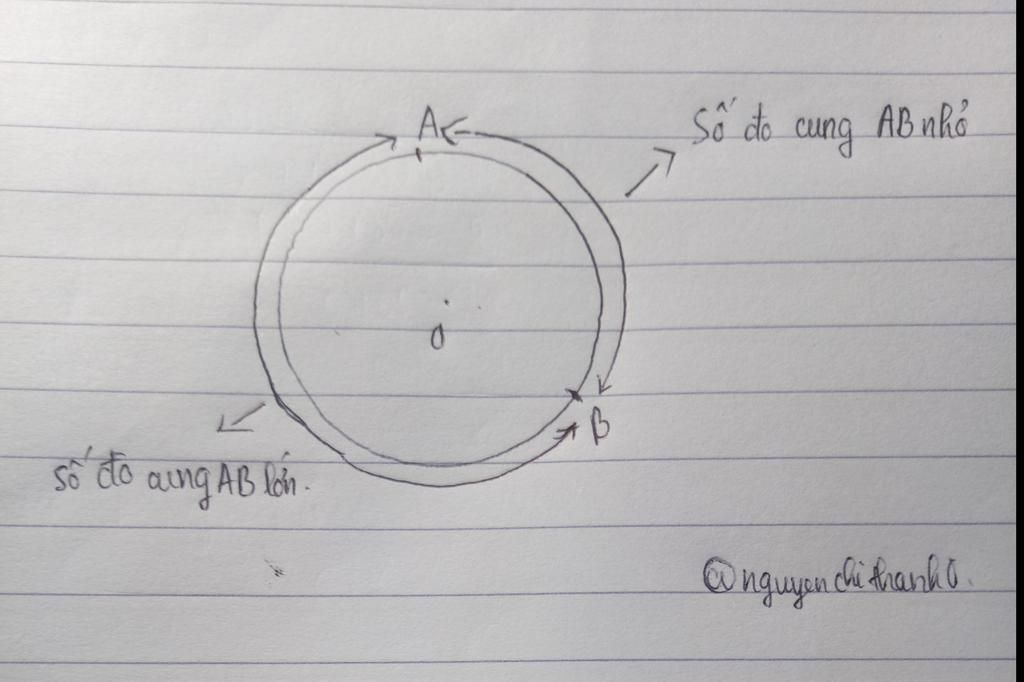 A
Số đo cung AB nhỏ
O
B
Số đo cung AB lớn.
@nguyenchithanh0.